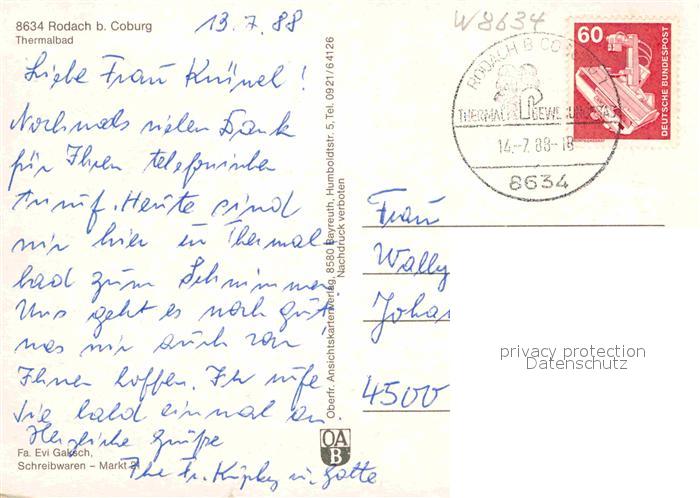 8634 Rodach b. Coburg
Thermalbad
13.7.88
W8634
Liebe Frau Krümel!
Nochmals vielen Dank
für Ihren telefonischen
Anruf. Heute sind
wir hier im Thermal-
bad zum Schwimmen.
Uns geht es noch gut
was wir auch von
Ihnen hoffen. Ich rufe
Sie bald einmal an.
Herzliche Grüße
Ihre Fr. u. Gatte
Fa. Evi Gaksch,
Schreibwaren – Markt
Oberfr. Ansichtskartenverlag, 8580 Bayreuth, Humboldtstr. 5, Tel. 0921/64126
Nachdruck verboten
OA
B
RODACH B CO
THERMAL
14.-7.88-18
8634
60
DEUTSCHE BUNDESPOST
Frau
Wally
Joha
4500
privacy protection
Datenschutz